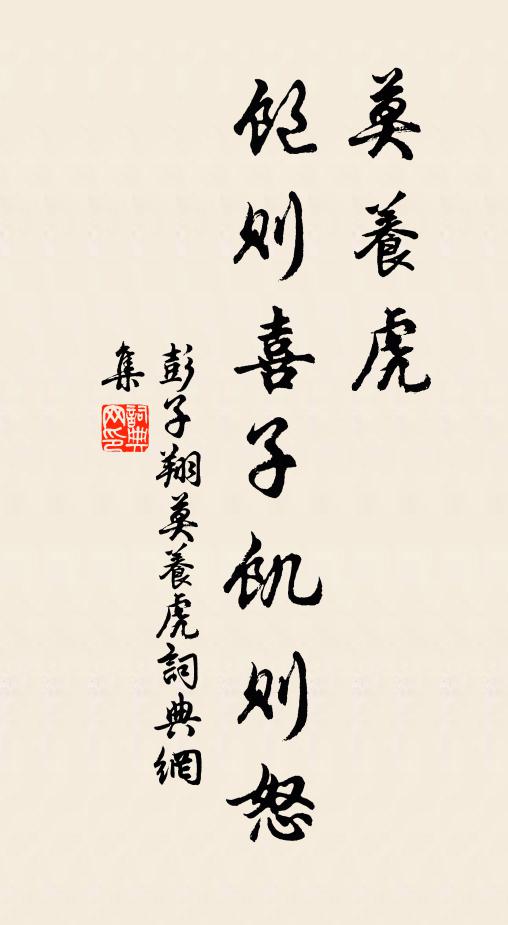 莫養虎
飽则喜子飢则怒
彭子翔莫養虎詞典網
集
詞典
网印